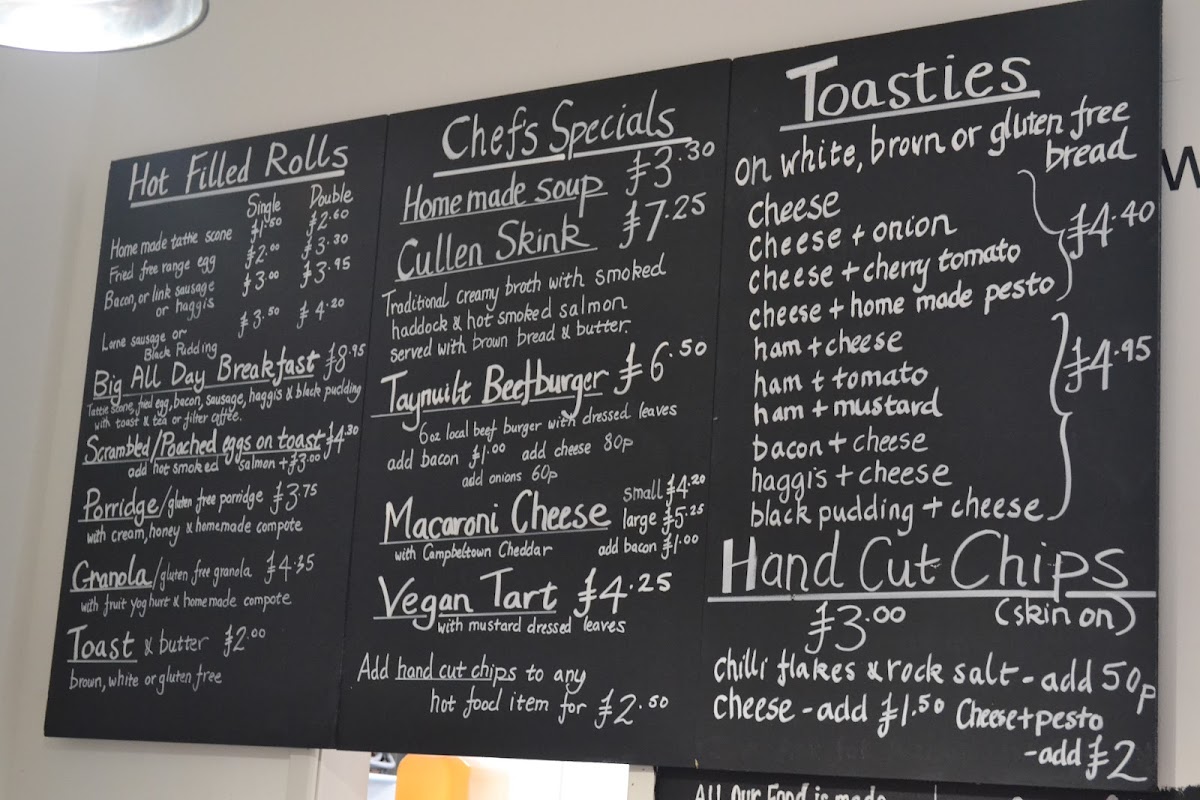 Hot Filled Rolls
Single Double
Home made tattie scone £1.50 £2.60
Fried free range egg £2.00 £3.30
Bacon, or link sausage £3.00 £3.95
or haggis
Lorne sausage or £3.50 £4.20
Black Pudding
Big All Day Breakfast £8.95
Tattie scone, fried egg, bacon, sausage, haggis & black pudding
with toast & tea or filter coffee.
Scrambled/Poached eggs on toast £4.30
add hot smoked salmon + £3.00
Porridge/gluten free porridge £3.75
with cream, honey & homemade compote
Granola/gluten free granola £4.35
with fruit yoghurt & homemade compote
Toast & butter £2.00
brown, white or gluten free
Chef's Specials
Home made soup £3.30
Cullen Skink £7.25
Traditional creamy broth with smoked
haddock & hot smoked salmon
served with brown bread & butter.
Taynuilt Beefburger £6.50
6oz local beef burger with dressed leaves
add bacon £1.00 add cheese 80p
add onions 60p
Macaroni Cheese small £4.20
large £5.25
with Campbeltown Cheddar add bacon £1.00
Vegan Tart £4.25
with mustard dressed leaves
Add hand cut chips to any
hot food item for £2.50
Toasties
on white, brown or gluten free
bread
cheese
cheese + onion £4.40
cheese + cherry tomato
cheese + home made pesto
ham + cheese
ham + tomato £4.95
ham + mustard
bacon + cheese
haggis + cheese
black pudding + cheese
Hand Cut Chips
£3.00 (skin on)
chilli flakes & rock salt - add 50p
cheese - add £1.50 Cheese + pesto
- add £2
All Our Food is made
W